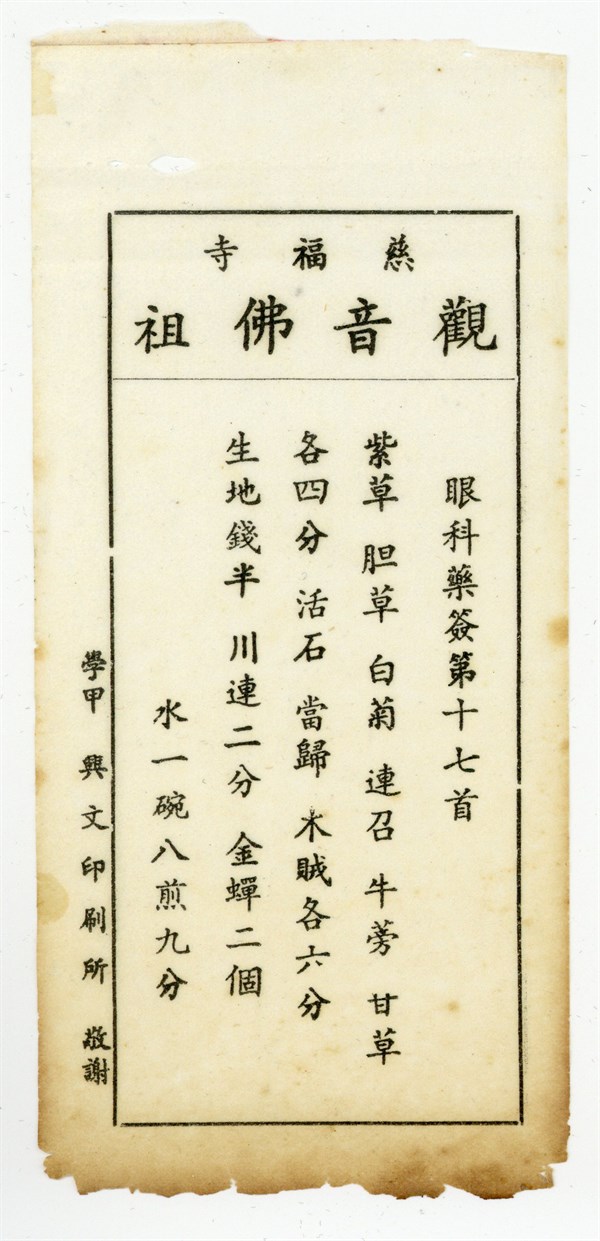 慈福寺
觀音佛祖
眼科藥簽第十七首
紫草 胆草 白菊 連召 牛蒡 甘草
各四分 活石 當歸 木賊各六分
生地錢半 川連二分 金蟬二個
水一碗八煎九分
學甲 興文印刷所 敬謝